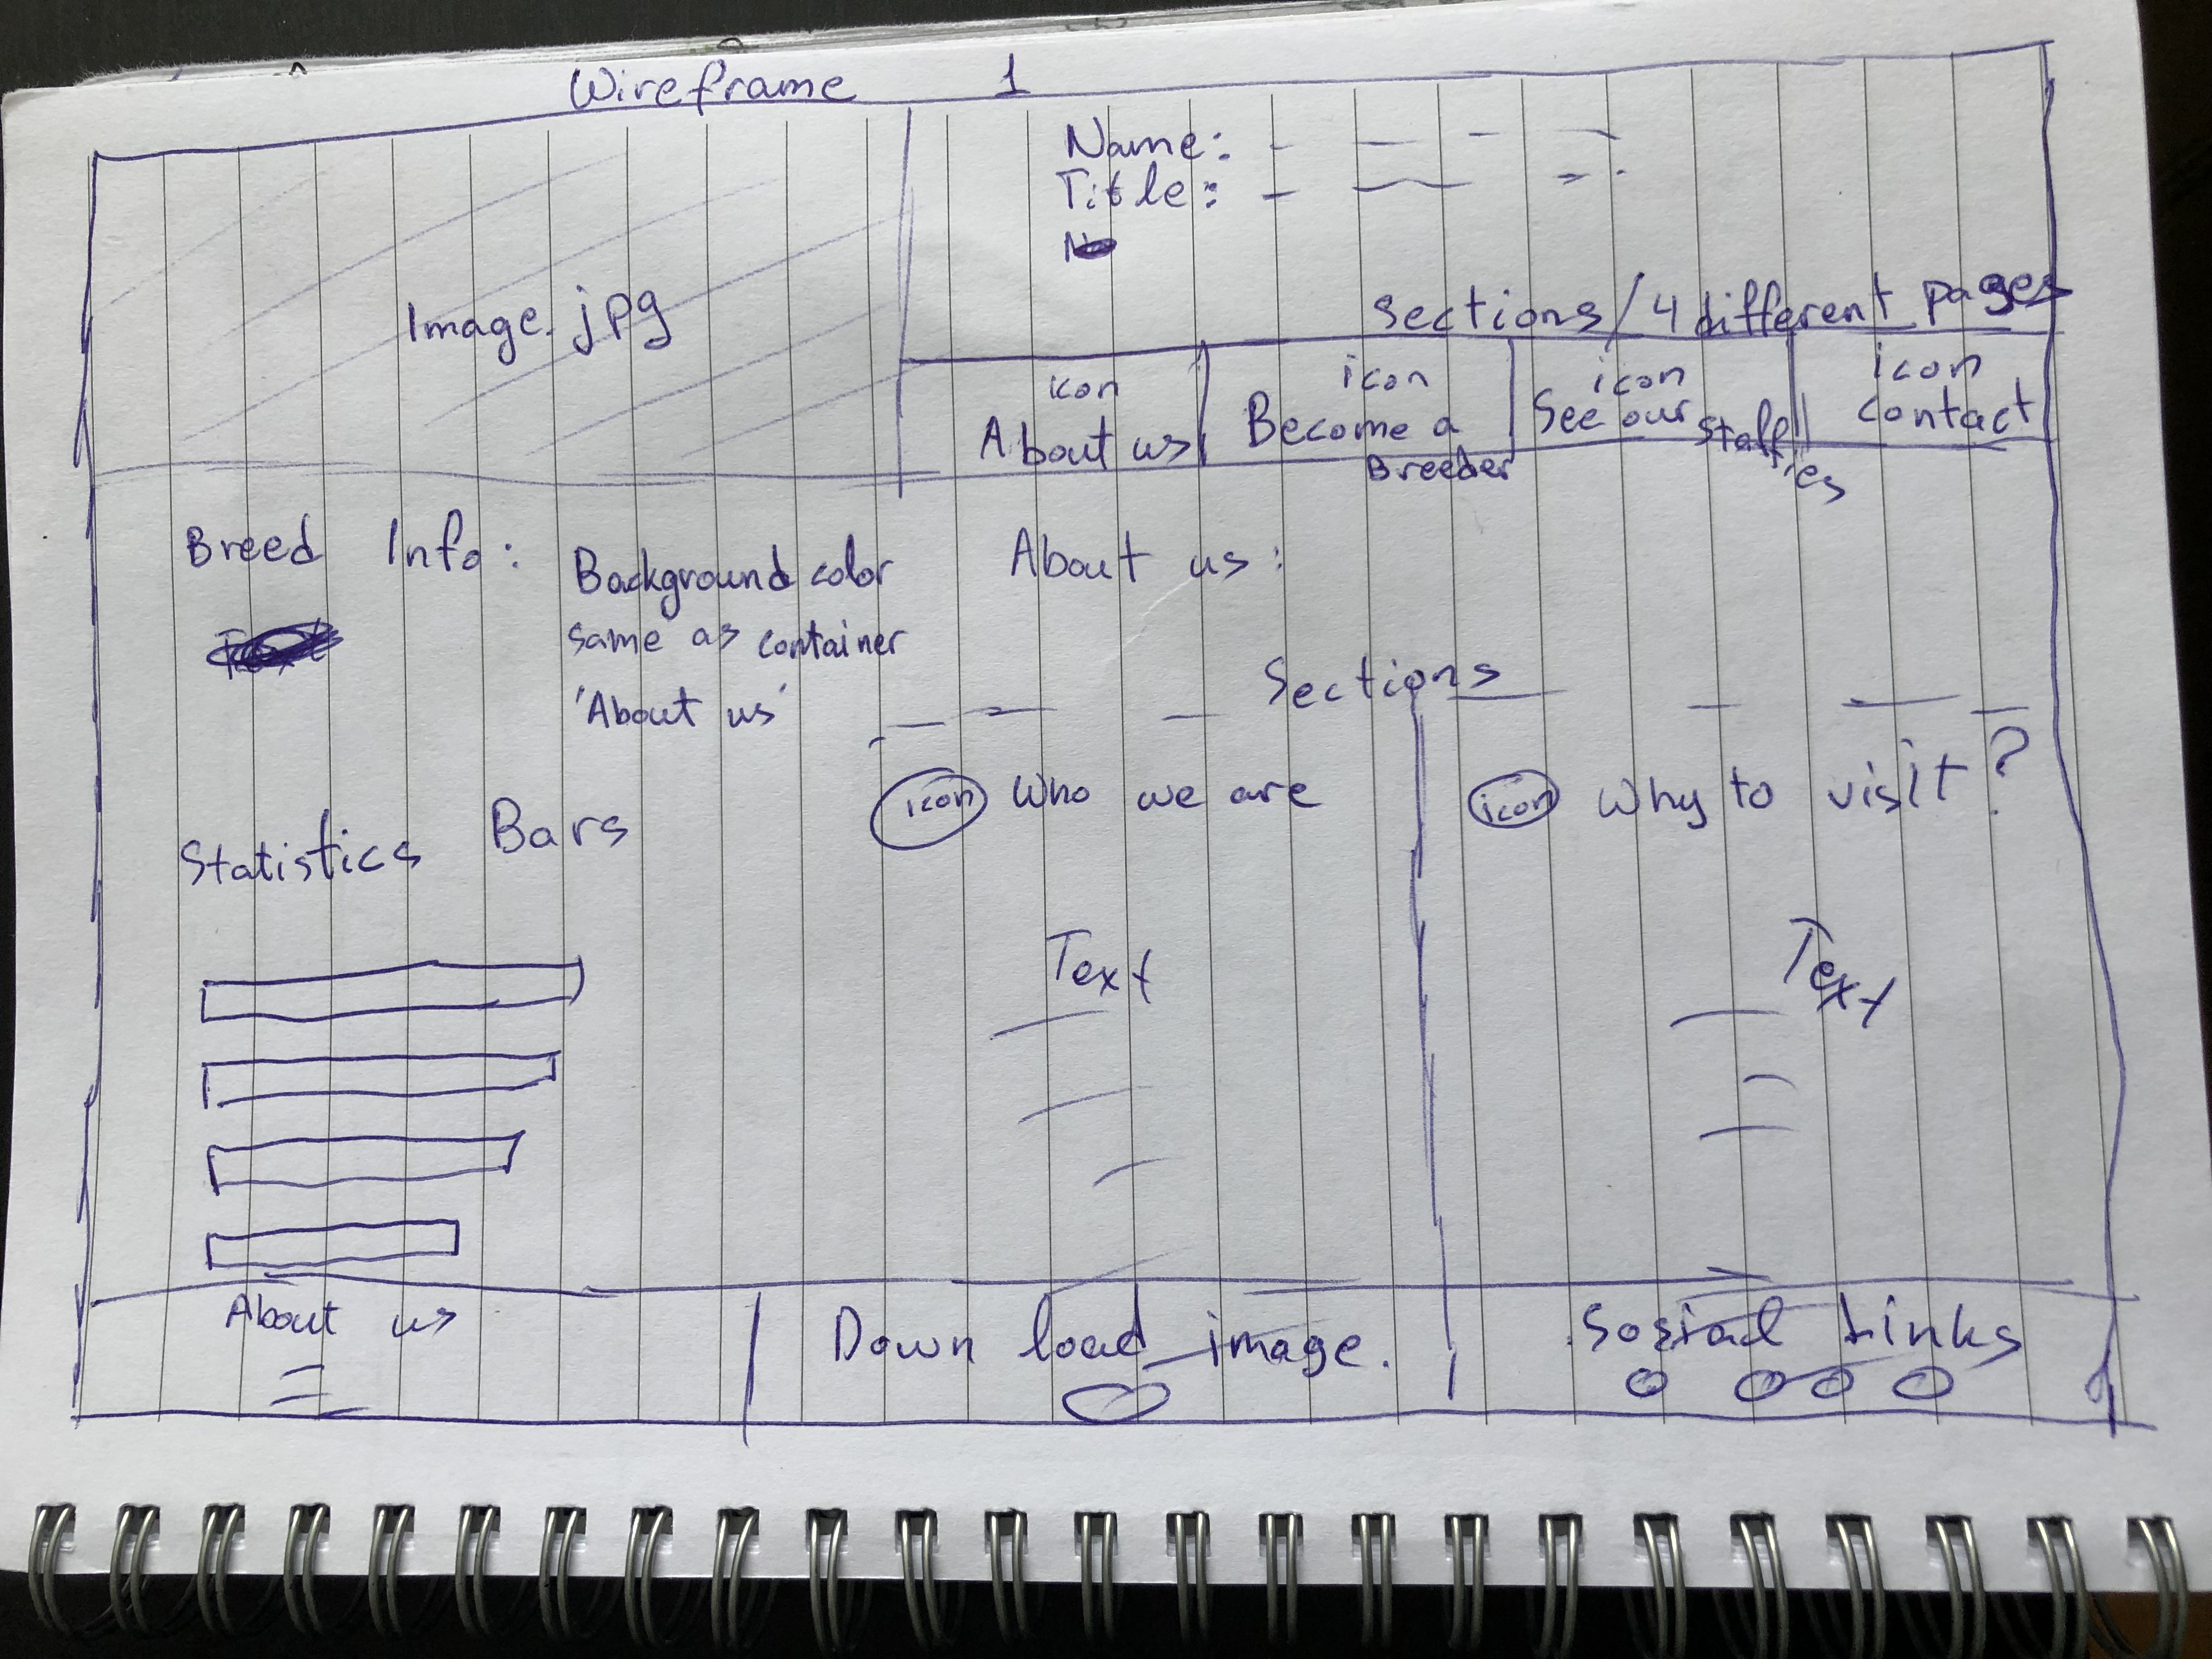 Wireframe 1
Image.jpg
Name:
Title:
Sections/4 different pages
icon
About us
icon
Become a
Breeder
icon
See our stallies
icon
contact
Breed Info:
Background color
same as container
'About us'
Statistics Bars
About us:
Sections
icon Who we are
Text
icon Why to visit?
Text
About us
Down load image.
Sosial Links